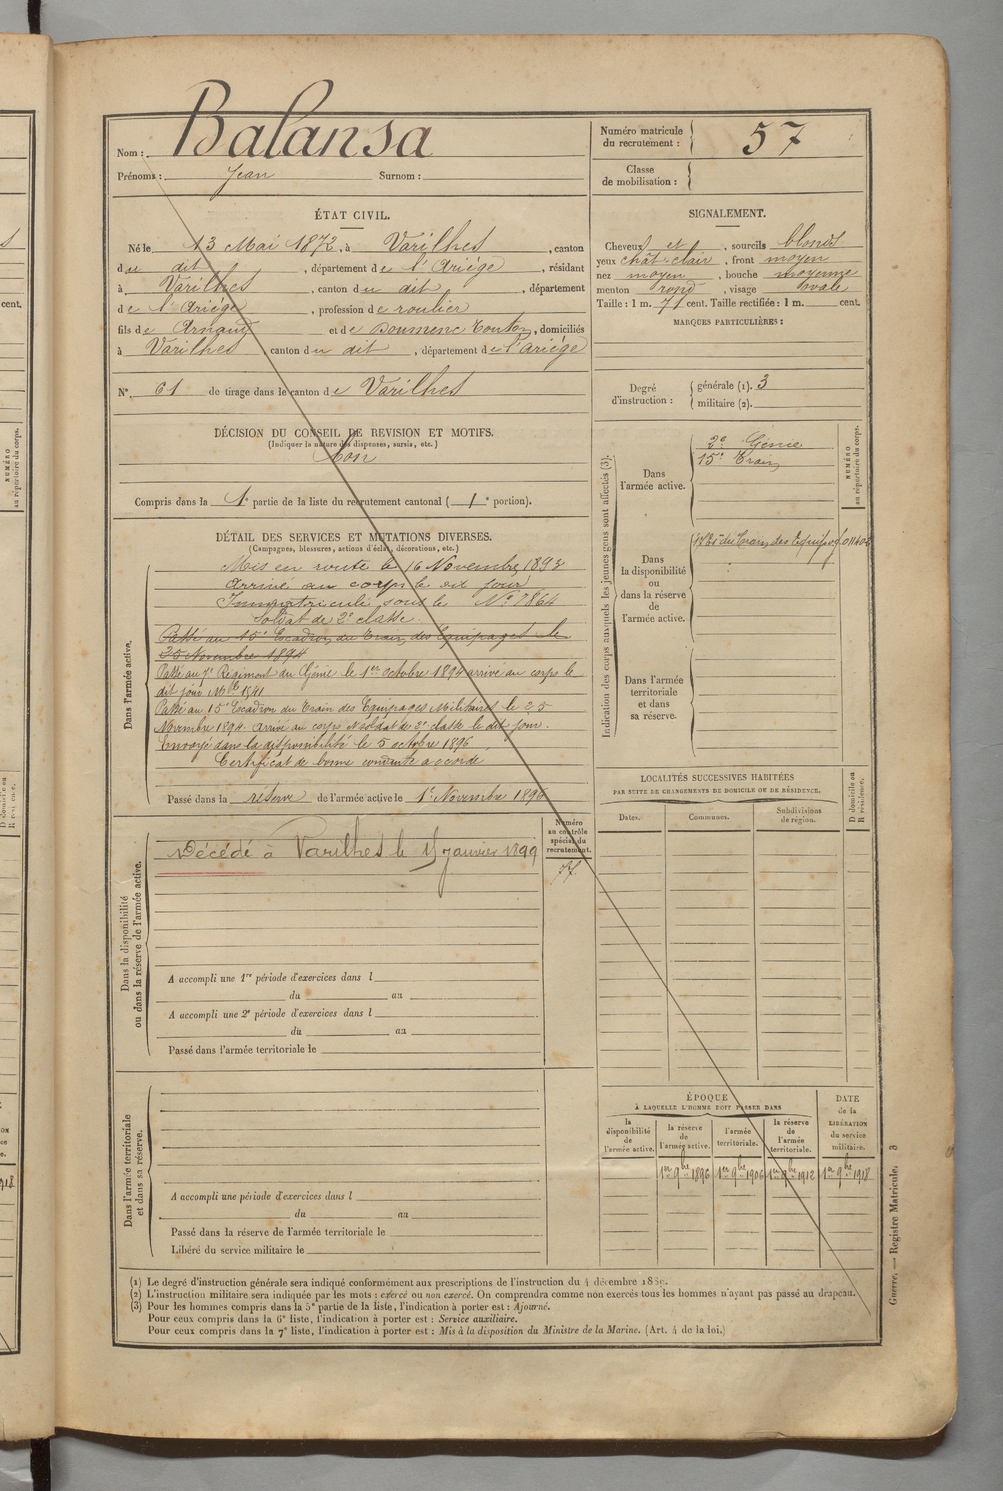 Nom : Balansa
Prénoms : Jean Surnom :
Numéro matricule du recrutement : 57
Classe de mobilisation :
ÉTAT CIVIL.
Né le 13 Mai 1872, à Varilhes, canton
du dit, département de l'Ariège, résidant
à Varilhes, canton du dit, département
de l'Ariège, profession de roulier
fils de Arnaud et de Doumenc Toinon, domiciliés
à Varilhes canton du dit, département de l'ariège
N° 61 de tirage dans le canton de Varilhes
DÉCISION DU CONSEIL DE REVISION ET MOTIFS.
(Indiquer la nature des dispenses, sursis, etc.)
Bon
Compris dans la 1e partie de la liste du recrutement cantonal ( 1e portion).
SIGNALEMENT.
Cheveux et, sourcils blonds
yeux chât-clair, front moyen
nez moyen, bouche moyenne
menton rond, visage ovale
Taille : 1 m. 71 cent. Taille rectifiée : 1 m. cent.
MARQUES PARTICULIÈRES :
Degré d'instruction : générale (1). 3
militaire (2).
DÉTAIL DES SERVICES ET MUTATIONS DIVERSES.
(Campagnes, blessures, actions d'éclat, décorations, etc.)
Dans l'armée active.
Mis en route le 16 Novembre 1893
Arrivé au corps le dit jour
Immatriculé sous le N° 7864
Soldat de 2e classe.
Passé au 15e Escadron du Train des Equipages le
25 Novembre 1894
Passé au 7e Régiment du Génie le 1er octobre 1894 arrivé au corps le
dit jour Mle 1541
Passé au 15e Escadron du Train des Equipages Militaires le 25
Novembre 1894. Arrivé au corps et soldat de 2e classe le dit jour.
Envoyé dans la disponibilité le 5 octobre 1896
Certificat de bonne conduite accordé
Passé dans la réserve de l'armée active le 1er Novembre 1896
Indication des corps auxquels les jeunes gens sont affectés (3).
NUMÉRO au répertoire du corps.
Dans l'armée active.
2e Génie
15e Train
Dans la disponibilité ou dans la réserve de l'armée active.
Dans l'armée territoriale et dans sa réserve.
LOCALITÉS SUCCESSIVES HABITÉES
PAR SUITE DE CHANGEMENTS DE DOMICILE OU DE RÉSIDENCE.
Dates. Communes. Subdivisions de région. D domicile ou R résidence.
Dans la disponibilité ou dans la réserve de l'armée active.
Numéro au contrôle spécial du recrutement.
77
Décédé à Varilhes le 15 janvier 1899
A accompli une 1re période d'exercices dans l
du au
A accompli une 2e période d'exercices dans l
du au
Passé dans l'armée territoriale le
Dans l'armée territoriale et dans sa réserve.
A accompli une période d'exercices dans l
du au
Passé dans la réserve de l'armée territoriale le
Libéré du service militaire le
ÉPOQUE
À LAQUELLE L'HOMME DOIT PASSER DANS
la disponibilité de l'armée active. la réserve de l'armée active. l'armée territoriale. la réserve de l'armée territoriale.
DATE de la LIBÉRATION du service militaire.
1er 9bre 1896 1er 9bre 1906 1er 9bre 1912 1er 9bre 1918
(1) Le degré d'instruction générale sera indiqué conformément aux prescriptions de l'instruction du 4 décembre 1889.
(2) L'instruction militaire sera indiquée par les mots : exercé ou non exercé. On comprendra comme non exercés tous les hommes n'ayant pas passé au drapeau.
(3) Pour les hommes compris dans la 5e partie de la liste, l'indication à porter est : Ajourné.
Pour ceux compris dans la 6e liste, l'indication à porter est : Service auxiliaire.
Pour ceux compris dans la 7e liste, l'indication à porter est : Mis à la disposition du Ministre de la Marine. (Art. 4 de la loi.)
Guerre. — Registre Matricule. 3